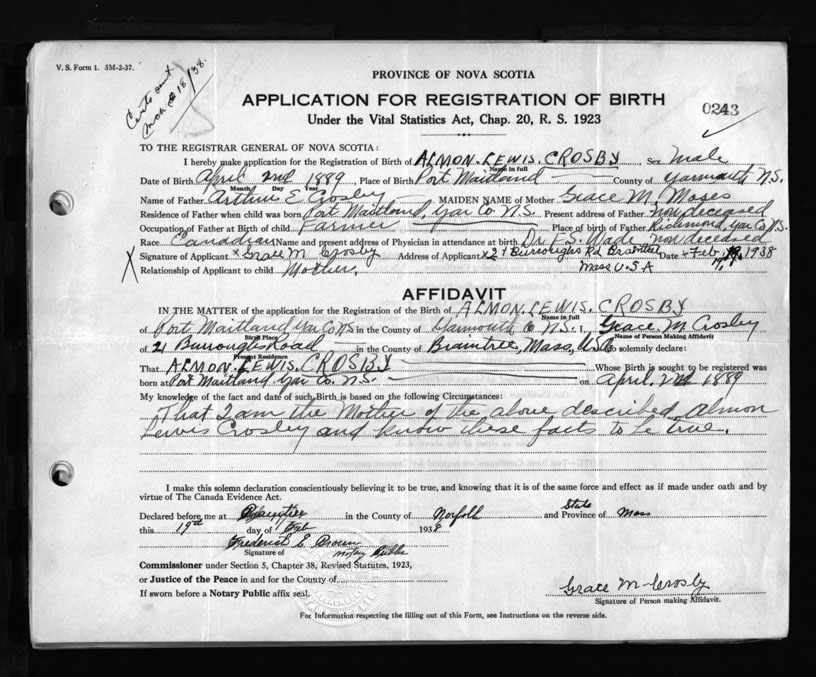 V. S. Form 1. 3M-2-37.
Certs sent
Mar 18/38.
PROVINCE OF NOVA SCOTIA
APPLICATION FOR REGISTRATION OF BIRTH
0243
Under the Vital Statistics Act, Chap. 20, R. S. 1923
TO THE REGISTRAR GENERAL OF NOVA SCOTIA:
I hereby make application for the Registration of Birth of ALMON. LEWIS. CROSBY, Sex Male
Name in full
Date of Birth April 2nd 1889, Place of Birth Port Maitland County of Yarmouth N.S.
Month Day Year
Name of Father Arthur E Crosby MAIDEN NAME of Mother Grace M, Moses
Residence of Father when child was born Port Maitland, Yar Co N.S. Present address of Father Now deceased
Occupation of Father at Birth of child Farmer Place of birth of Father Richmond, Yar Co N.S.
Race Canadian Name and present address of Physician in attendance at birth Dr F.S. Wade, now deceased
Signature of Applicant x Grace M Crosby Address of Applicant x 21 Burroughs Rd Braintree Date Feb 19, 1938
X Relationship of Applicant to child Mother. Mass U.S.A
AFFIDAVIT
IN THE MATTER of the application for the Registration of the Birth of ALMON. LEWIS. CROSBY
Name in full
of Port Maitland Yar Co NS in the County of Yarmouth N.S. I, Grace. M Crosby
Birth Place Name of Person Making Affidavit
of 21 Burroughs Road in the County of Braintree, Mass, USA do solemnly declare:
Present Residence
That ALMON. LEWIS. CROSBY Whose Birth is sought to be registered was
born at Port Maitland Yar Co. N.S. on April. 2nd 1889
My knowledge of the fact and date of such Birth is based on the following Circumstances:
That I am the Mother of the above described Almon
Lewis Crosby and know these facts to be true.
I make this solemn declaration conscientiously believing it to be true, and knowing that it is of the same force and effect as if made under oath and by
virtue of The Canada Evidence Act.
State
Declared before me at Braintree in the County of Norfolk and Province of Mass
this 19th day of Feb 1938
Frederick C Brown
Signature of Notary Public
Commissioner under Section 5, Chapter 38, Revised Statutes, 1923,
or Justice of the Peace in and for the County of
Grace M Crosby
If sworn before a Notary Public affix seal.
Signature of Person making Affidavit.
For Information respecting the filling out of this Form, see Instructions on the reverse side.